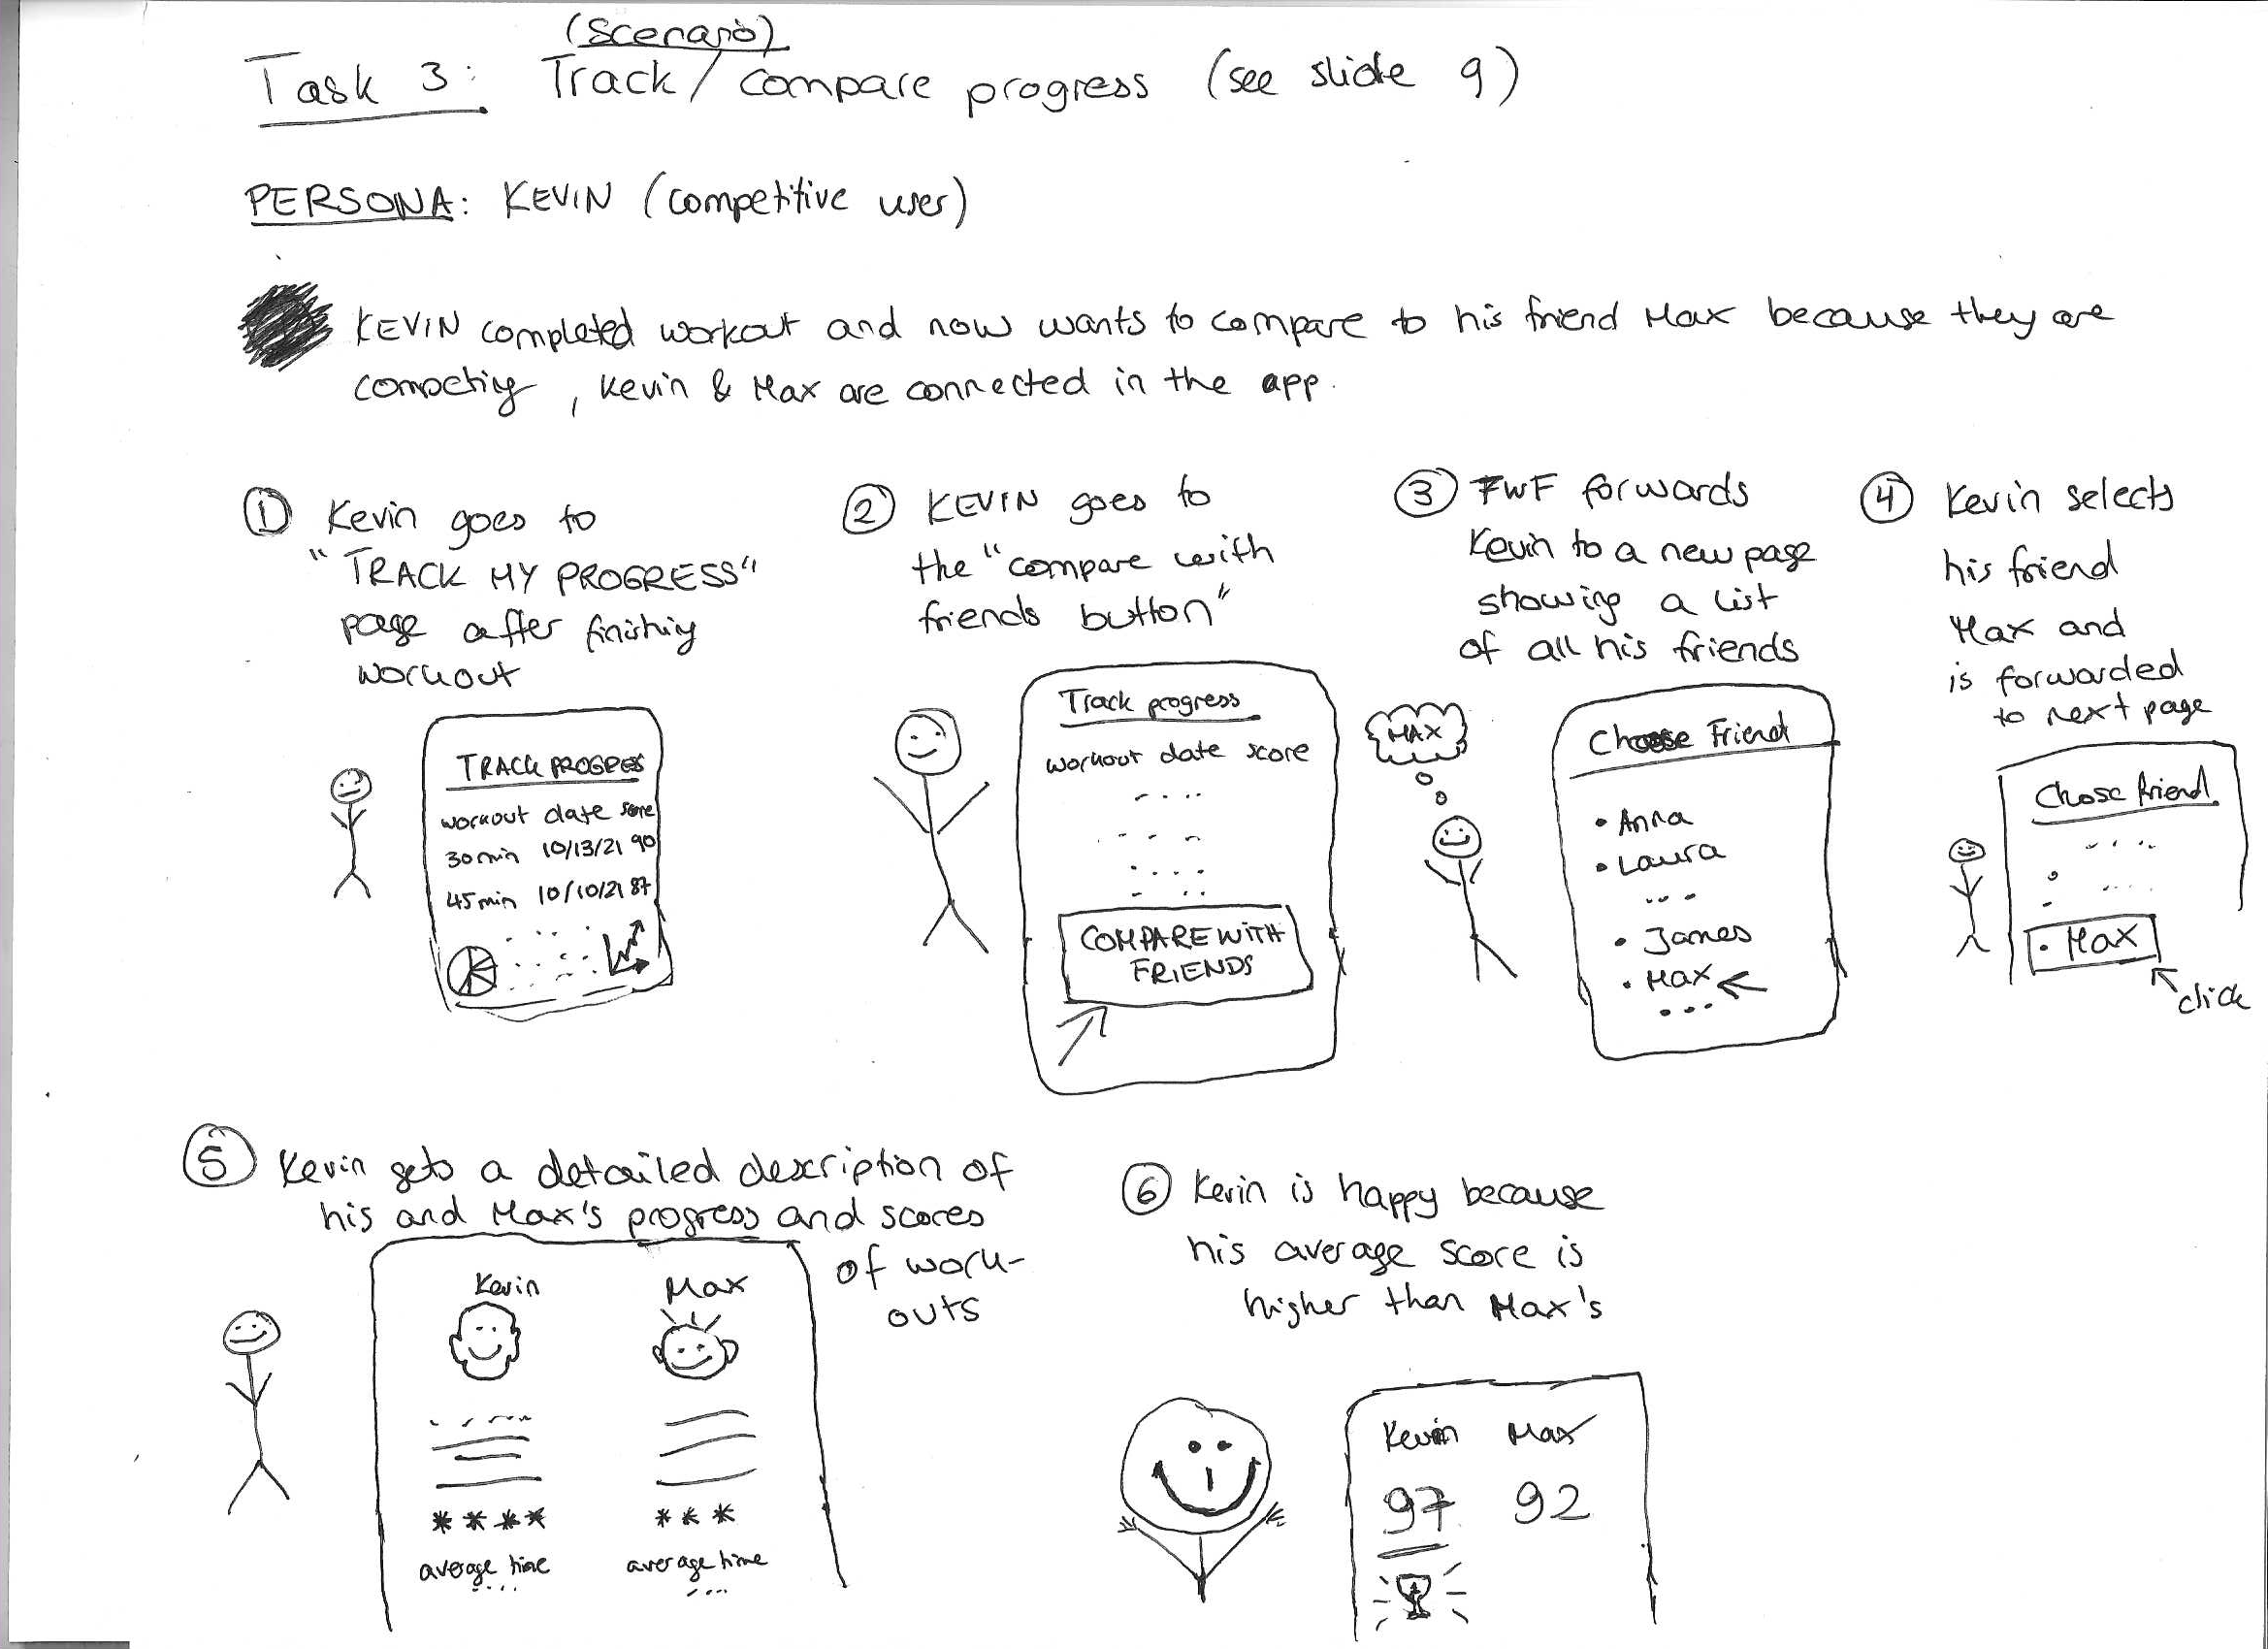 (Scenario)
Task 3: Track / compare progress (see slide 9)
PERSONA: KEVIN (competitive user)
KEVIN completed workout and now wants to compare to his friend Max because they are
competing, Kevin & Max are connected in the app.
① Kevin goes to
"TRACK MY PROGRESS"
page after finishing
workout
TRACK PROGRES
workout date score
30 min 10/13/21 90
45 min 10/10/21 87
② KEVIN goes to
the "compare with
friends button"
Track progress
workout date score
COMPARE WITH
FRIENDS
③ FWF forwards
Kevin to a new page
showing a list
of all his friends
MAX
Choose Friend
• Anna
• Laura
...
• James
• Max
...
④ Kevin selects
his friend
Max and
is forwarded
to next page
Chose friend
• Max
click
⑤ Kevin gets a detailed description of
his and Max's progress and scores
of work-
outs
Kevin Max
**** ***
average time average time
⑥ Kevin is happy because
his average score is
higher than Max's
Kevin Max
97 92